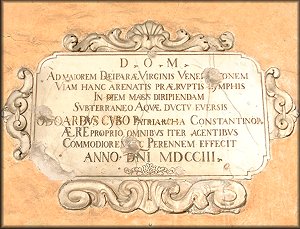 D. O. M
AD MAIOREM DEIPARÆ VIRGINIS VENE
VIAM HANC ARENATIS PRÆRVPTIS
IN DIEM MAGIS DIRIPIENDAM
SVBTERRANEO AQVÆ DVCTV EVERSIS
CYBO PATRIARCHA CONSTANTINOP
ÆRE PROPRIO OMNIBVS ITER AGENTIBVS
COMMODIOREM PERENNEM EFFECIT
ANNO DNI MDCCIII